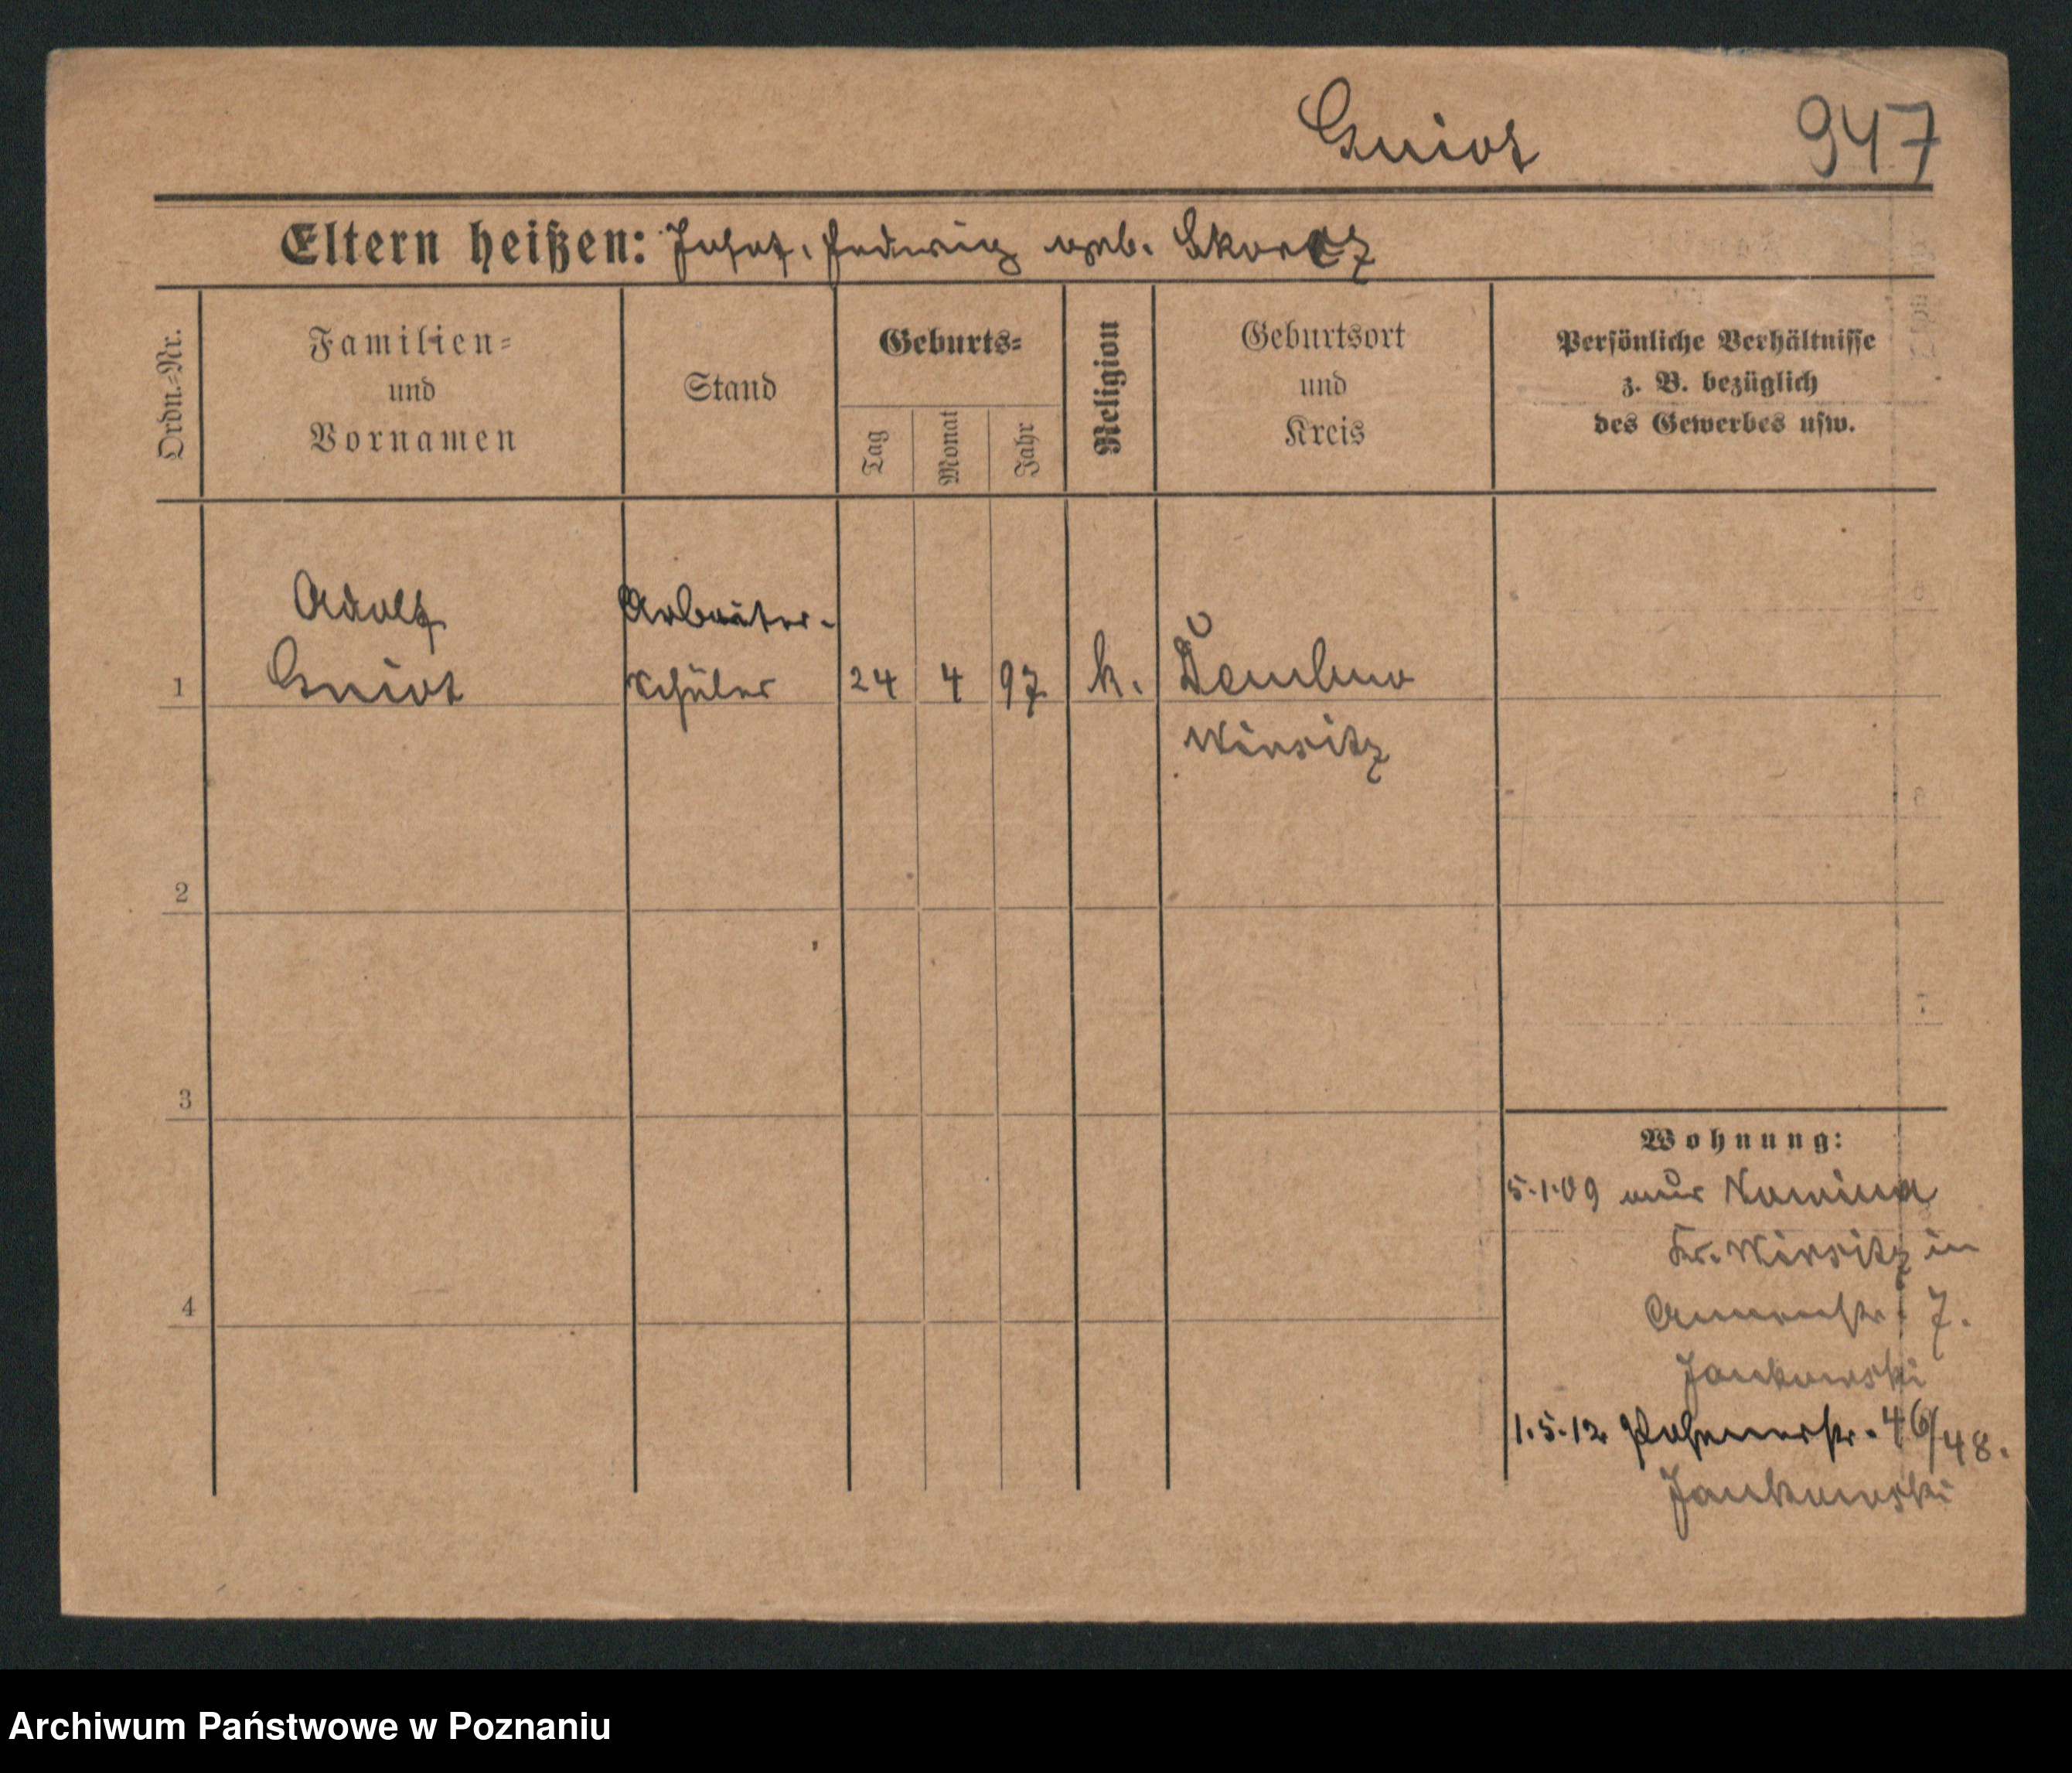 Gniot 947
Eltern heißen: Josef, Hedwig geb. Skorcz
Ordn.-Nr.
Familien-
und
Vornamen
Stand
Geburts-
Tag
Monat
Jahr
Religion
Geburtsort
und
Kreis
Persönliche Verhältnisse
z. B. bezüglich
des Gewerbes usw.
Adolf Arbeiter.
1 Gniot Schüler 24 4 97 k. Dembno
Wirsitz
2
3
4
Wohnung:
5.1.09 aus
Kr. Wirsitz in
7.
Jankowski
1.5.12 Posenerstr. 46/48.
Jankowski
Archiwum Państwowe w Poznaniu